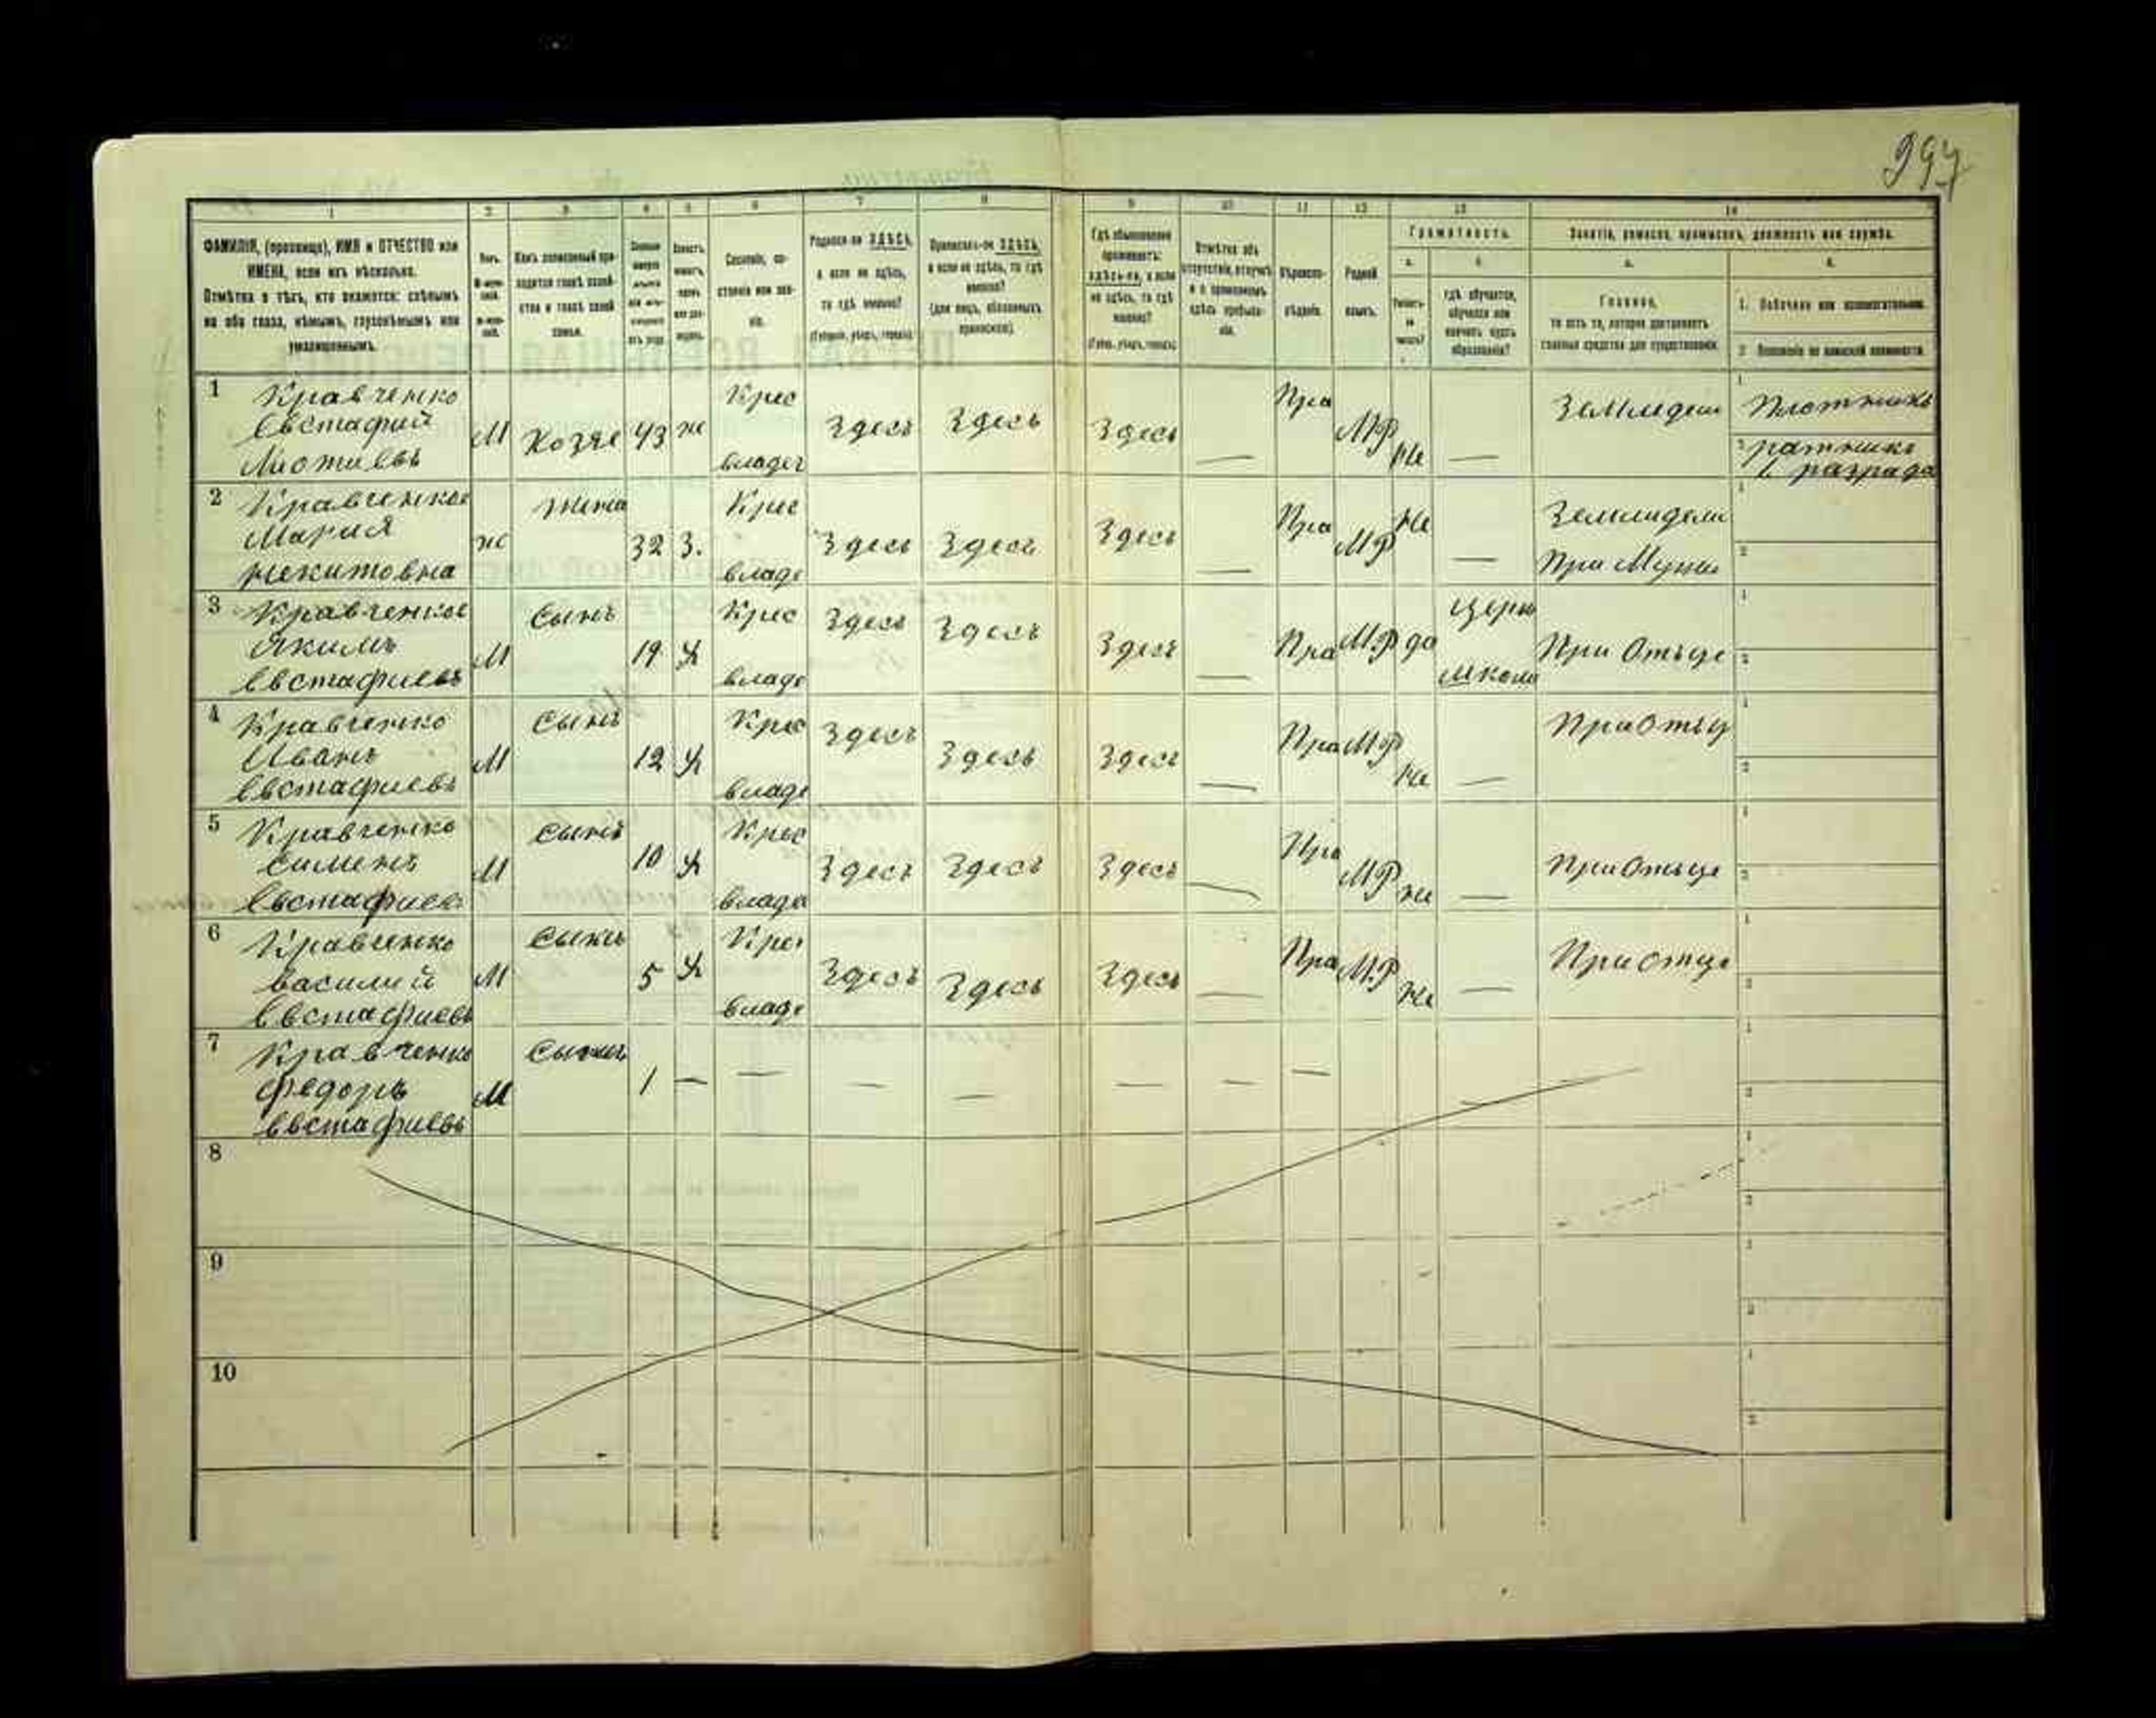 997
1 2 3 4 5 6 7 8 9 10 11 12 13 14
ФАМИЛІЯ, (прозвище), ИМЯ и ОТЧЕСТВО или
ИМЕНА, если ихъ нѣсколько.
Отмѣтка о тѣхъ, кто окажется: слѣпымъ
на оба глаза, нѣмымъ, глухонѣмымъ или
умалишеннымъ.
Полъ.
Какъ записанный при-
ходится главѣ хозяй-
ства и главѣ своей
семьи.
Сословіе, со-
стояніе или зва-
ніе.
Родился-ли ЗДѢСЬ,
а если не здѣсь,
то гдѣ именно?
(Губернія, уѣздъ, городъ)
Приписанъ-ли ЗДѢСЬ,
а если не здѣсь, то гдѣ
именно?
(для лицъ, обязанныхъ
припиской)
Гдѣ обыкновенно
проживаетъ:
здѣсь-ли, а если
не здѣсь, то гдѣ
именно?
(Губер., уѣздъ, городъ)
Отмѣтка объ
отсутствіи, отлучкѣ
и о временномъ
здѣсь пребыва-
ніи.
Вѣроиспо-
вѣданіе.
Родной
языкъ.
Грамотность.
а. б.
Умѣетъ-
ли
читать?
гдѣ обучается,
обучался или
кончилъ курсъ
образованія?
Занятіе, ремесло, промыселъ, должность или служба.
а. б.
Главное,
то есть то, которое доставляетъ
главныя средства для существованія.
1. Побочное или вспомогательное.
2. Положеніе по воинской повинности.
1 Кравченко Крес Пра 1
Евстафий М Хозяе 43 ж Здесь Здесь Здесь М.Р Земледели Плотникъ
владе — Не — 2 ратникъ
разряда
2 Кравченкое Жена Крес Пра Не Земледели 1
Мария ж 32 З. Здесь Здесь Здесь МР
некитовна владе — — При Мужи 2
3 Кравченкое Сынъ Крес Здесь Здесь церк 1
Якимъ М 19 Х Здесь Пра М.Р да При Отъце
Евстафиевъ владе — школи 2
4 Кравченко Сынъ Крес Здесь При Отъц 1
Иванъ М 12 Х Здесь Здесь Пра МР
Евстафиевъ владе — Не — 2
5 Кравченко Сынъ Крес Пра 1
Сименъ М 10 Х Здесь Здесь Здесь МР При Отъце
Евстафиев владе — не — 2
6 Кравченко Сынъ Крес Пра При Отце 1
Василий М 5 Х Здесь Здесь Здесь М.Р
Евстафиевъ владе — Не — 2
7 Кравченко Сынъ 1
Федоръ М 1 — — — — — — — 2
Евстафиевъ
8 1
2
9 1
2
10 1
2